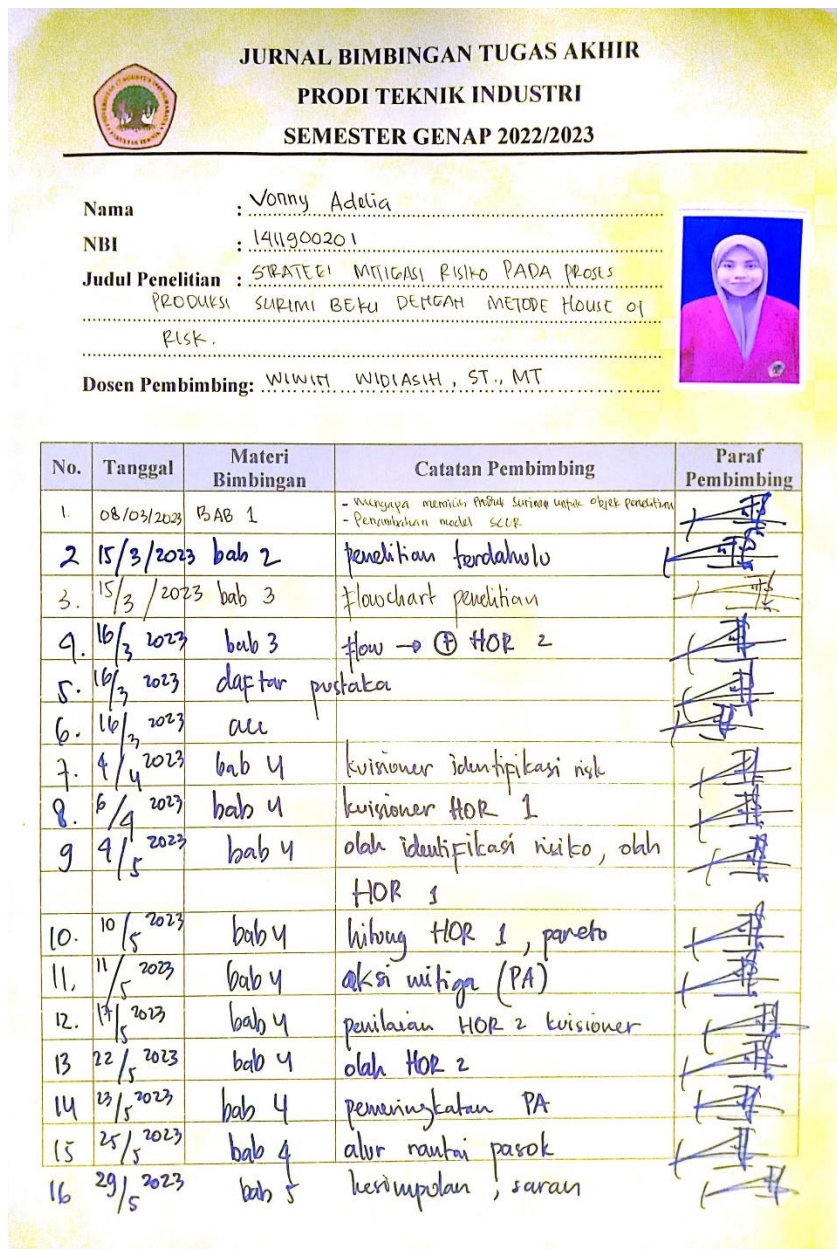 JURNAL BIMBINGAN TUGAS AKHIR
PRODI TEKNIK INDUSTRI
SEMESTER GENAP 2022/2023
Nama : Vonny Adelia
NBI : 1411900201
Judul Penelitian : STRATEGI MITIGASI RISIKO PADA PROSES
PRODUKSI SURIMI BEKU DENGAN METODE HOUSE OF
RISK.
Dosen Pembimbing: WIWIN WIDIASIH, ST., MT
No. Tanggal Materi Bimbingan Catatan Pembimbing Paraf Pembimbing
1. 08/03/2023 BAB 1 - Mengapa memilih Produk Surimi untuk objek penelitian
- Penambahan model SCOR
2 15/3/2023 bab 2 penelitian terdahulu
3. 15/3/2023 bab 3 flowchart penelitian
4. 16/3 2023 bab 3 flow → + HOR 2
5. 16/3 2023 daftar pustaka
6. 16/3 2023 acc
7. 4/4 2023 bab 4 kuisioner identifikasi risk
8. 6/4 2023 bab 4 kuisioner HOR 1
9 4/5 2023 bab 4 olah identifikasi risiko, olah
HOR 1
10. 10/5 2023 bab 4 hitung HOR 1, pareto
11. 11/5 2023 bab 4 aksi mitiga (PA)
12. 17/5 2023 bab 4 penilaian HOR 2 kuisioner
13 22/5 2023 bab 4 olah HOR 2
14 23/5 2023 bab 4 pemeringkatan PA
15 25/5 2023 bab 4 alur rantai pasok
16 29/5 2023 bab 5 kesimpulan, saran